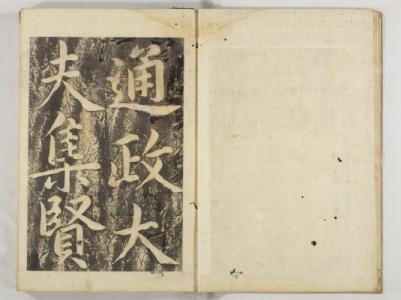 通政大
夫集賢